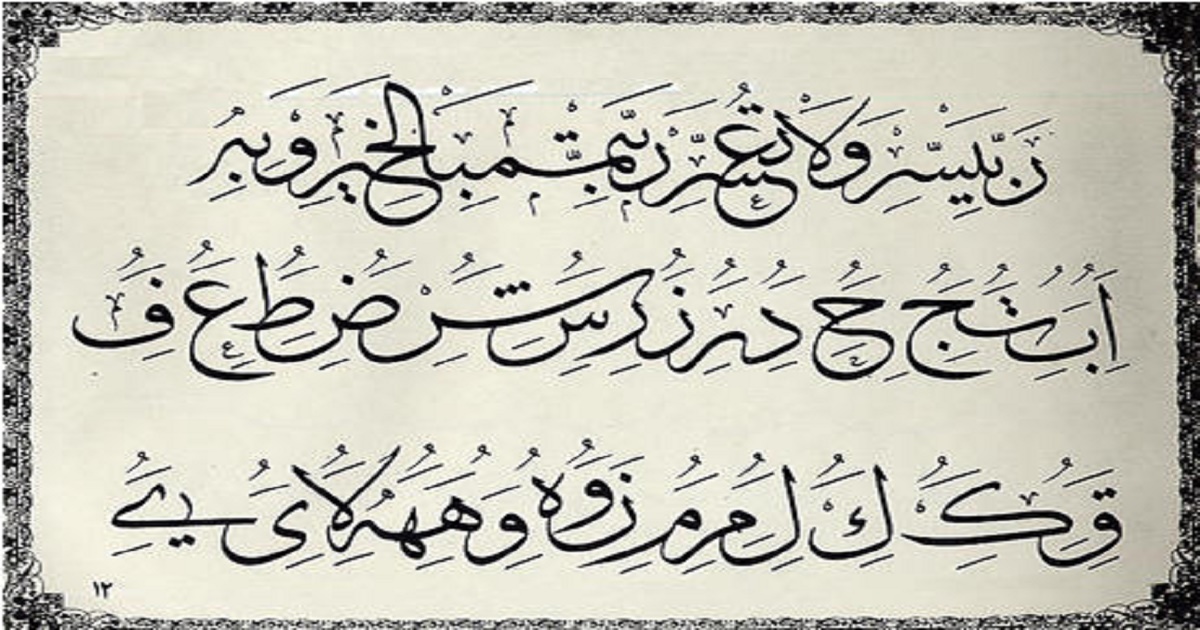 رَبِّ يَسِّرْ وَلَا تُعَسِّرْ رَبِّ تَمِّمْ بِالْخَيْرِ وَبِهِ
ا ب ت ج ح د ر ز ر س ش ض ط ع ف
ق ك ك ل م م ن و ه و ه ه لا ى ي
١٢